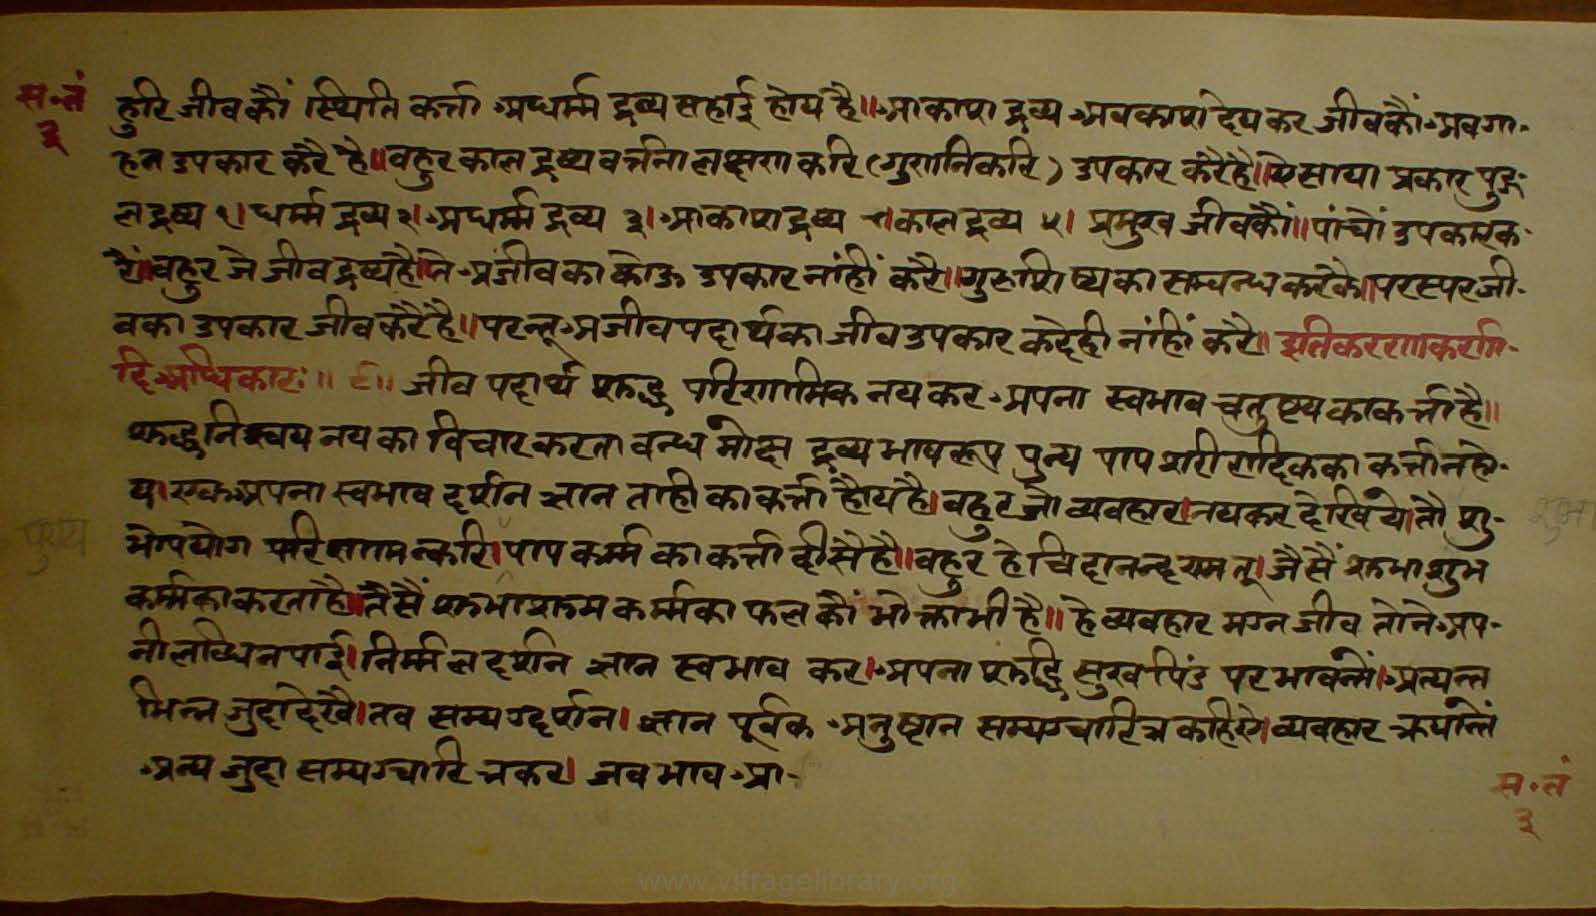 स॰तं
३
हुरि जीव कौं स्थिति कर्त्ता अधर्म्म द्रव्य सहाई होय है॥ आकाश द्रव्य अवकाश देय कर जीवकौं अवगा-
हन उपकार करै है॥ वहुर काल द्रव्य वर्त्तना लक्षण करि (गुणनिकरि) उपकार करैहै॥ ऐसा या प्रकार पुद्ग-
ल द्रव्य १। धर्म्म द्रव्य २। अधर्म्म द्रव्य ३। आकाश द्रव्य ४। काल द्रव्य ५। प्रमुख जीवकौं॥ पांचों उपकार क-
रैं॥ वहुर जे जीव द्रव्य है॥ ते अजीव का कोऊ उपकार नांहीं करै॥ गुरु शिष्य का सम्वन्ध करकै॥ परस्पर जी-
वका उपकार जीव करै है॥ परन्तू अजीव पदार्थका जीव उपकार कदेही नांहीं करै॥ इति करण करणि-
दि अधिकारः॥ ८॥ जीव पदार्थ शुद्ध परिणामिक नय कर अपना स्वभाव चतुष्टय का कर्त्ता है॥
शुद्ध निश्चय नय का विचार करता वन्ध मोक्ष द्रव्य भाव रूप पुन्य पाप शरीरादिकका कर्त्ता न हो-
य। एक अपना स्वभाव दर्शन ज्ञान ताही का कर्त्ता होय है। वहुर जो व्यवहार। नय कर देखिये। तौ शु-
भोपयोग परिणामन्करि। पाप कर्म्म का कर्त्ता दीसै है॥ वहुर हे चिदानन्द रामतू। जैसैं शुभाशुभ
कर्म्मका करता है॥ तैसैं शुभाशुभ कर्म्मका फल कौं भोक्ता भी है॥ हे व्यवहार मग्न जीव तोने अप-
नी लव्धि न पाई। निर्म्मल दर्शन ज्ञान स्वभाव कर। अपना शुद्धि सुख पिंड पर भावन्तें। अत्यन्त
भिन्न जुदा देखै। तव सम्यग्दर्शन। ज्ञान पूर्वक अनुष्टान सम्यग्चारित्र कहिऐ। व्यवहार क्रयान्तें
अन्य जुदा सम्यग्चारित्र कर। जव भाव आ-
पुण्य
शुभ
स॰तं
३
www.vitragelibrary.org